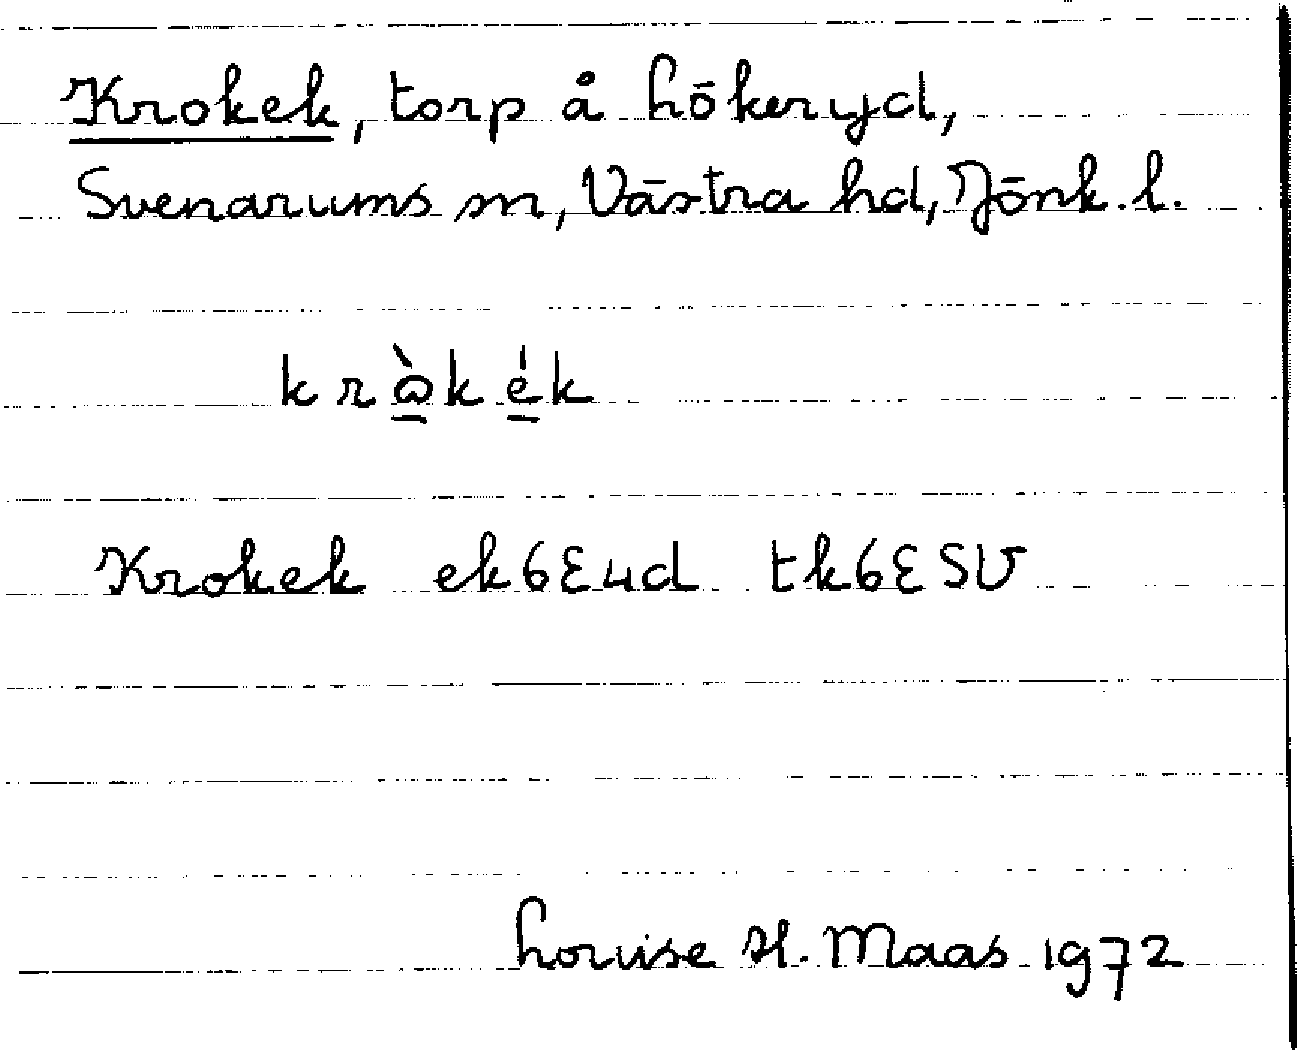 Krokek, torp å Lökeryd,
Svenarums sn, Västra hd, Jönk. l.
krɷ̠̀ké̠k
Krokek ek6E4d tk6ESV
Louise H. Maas 1972